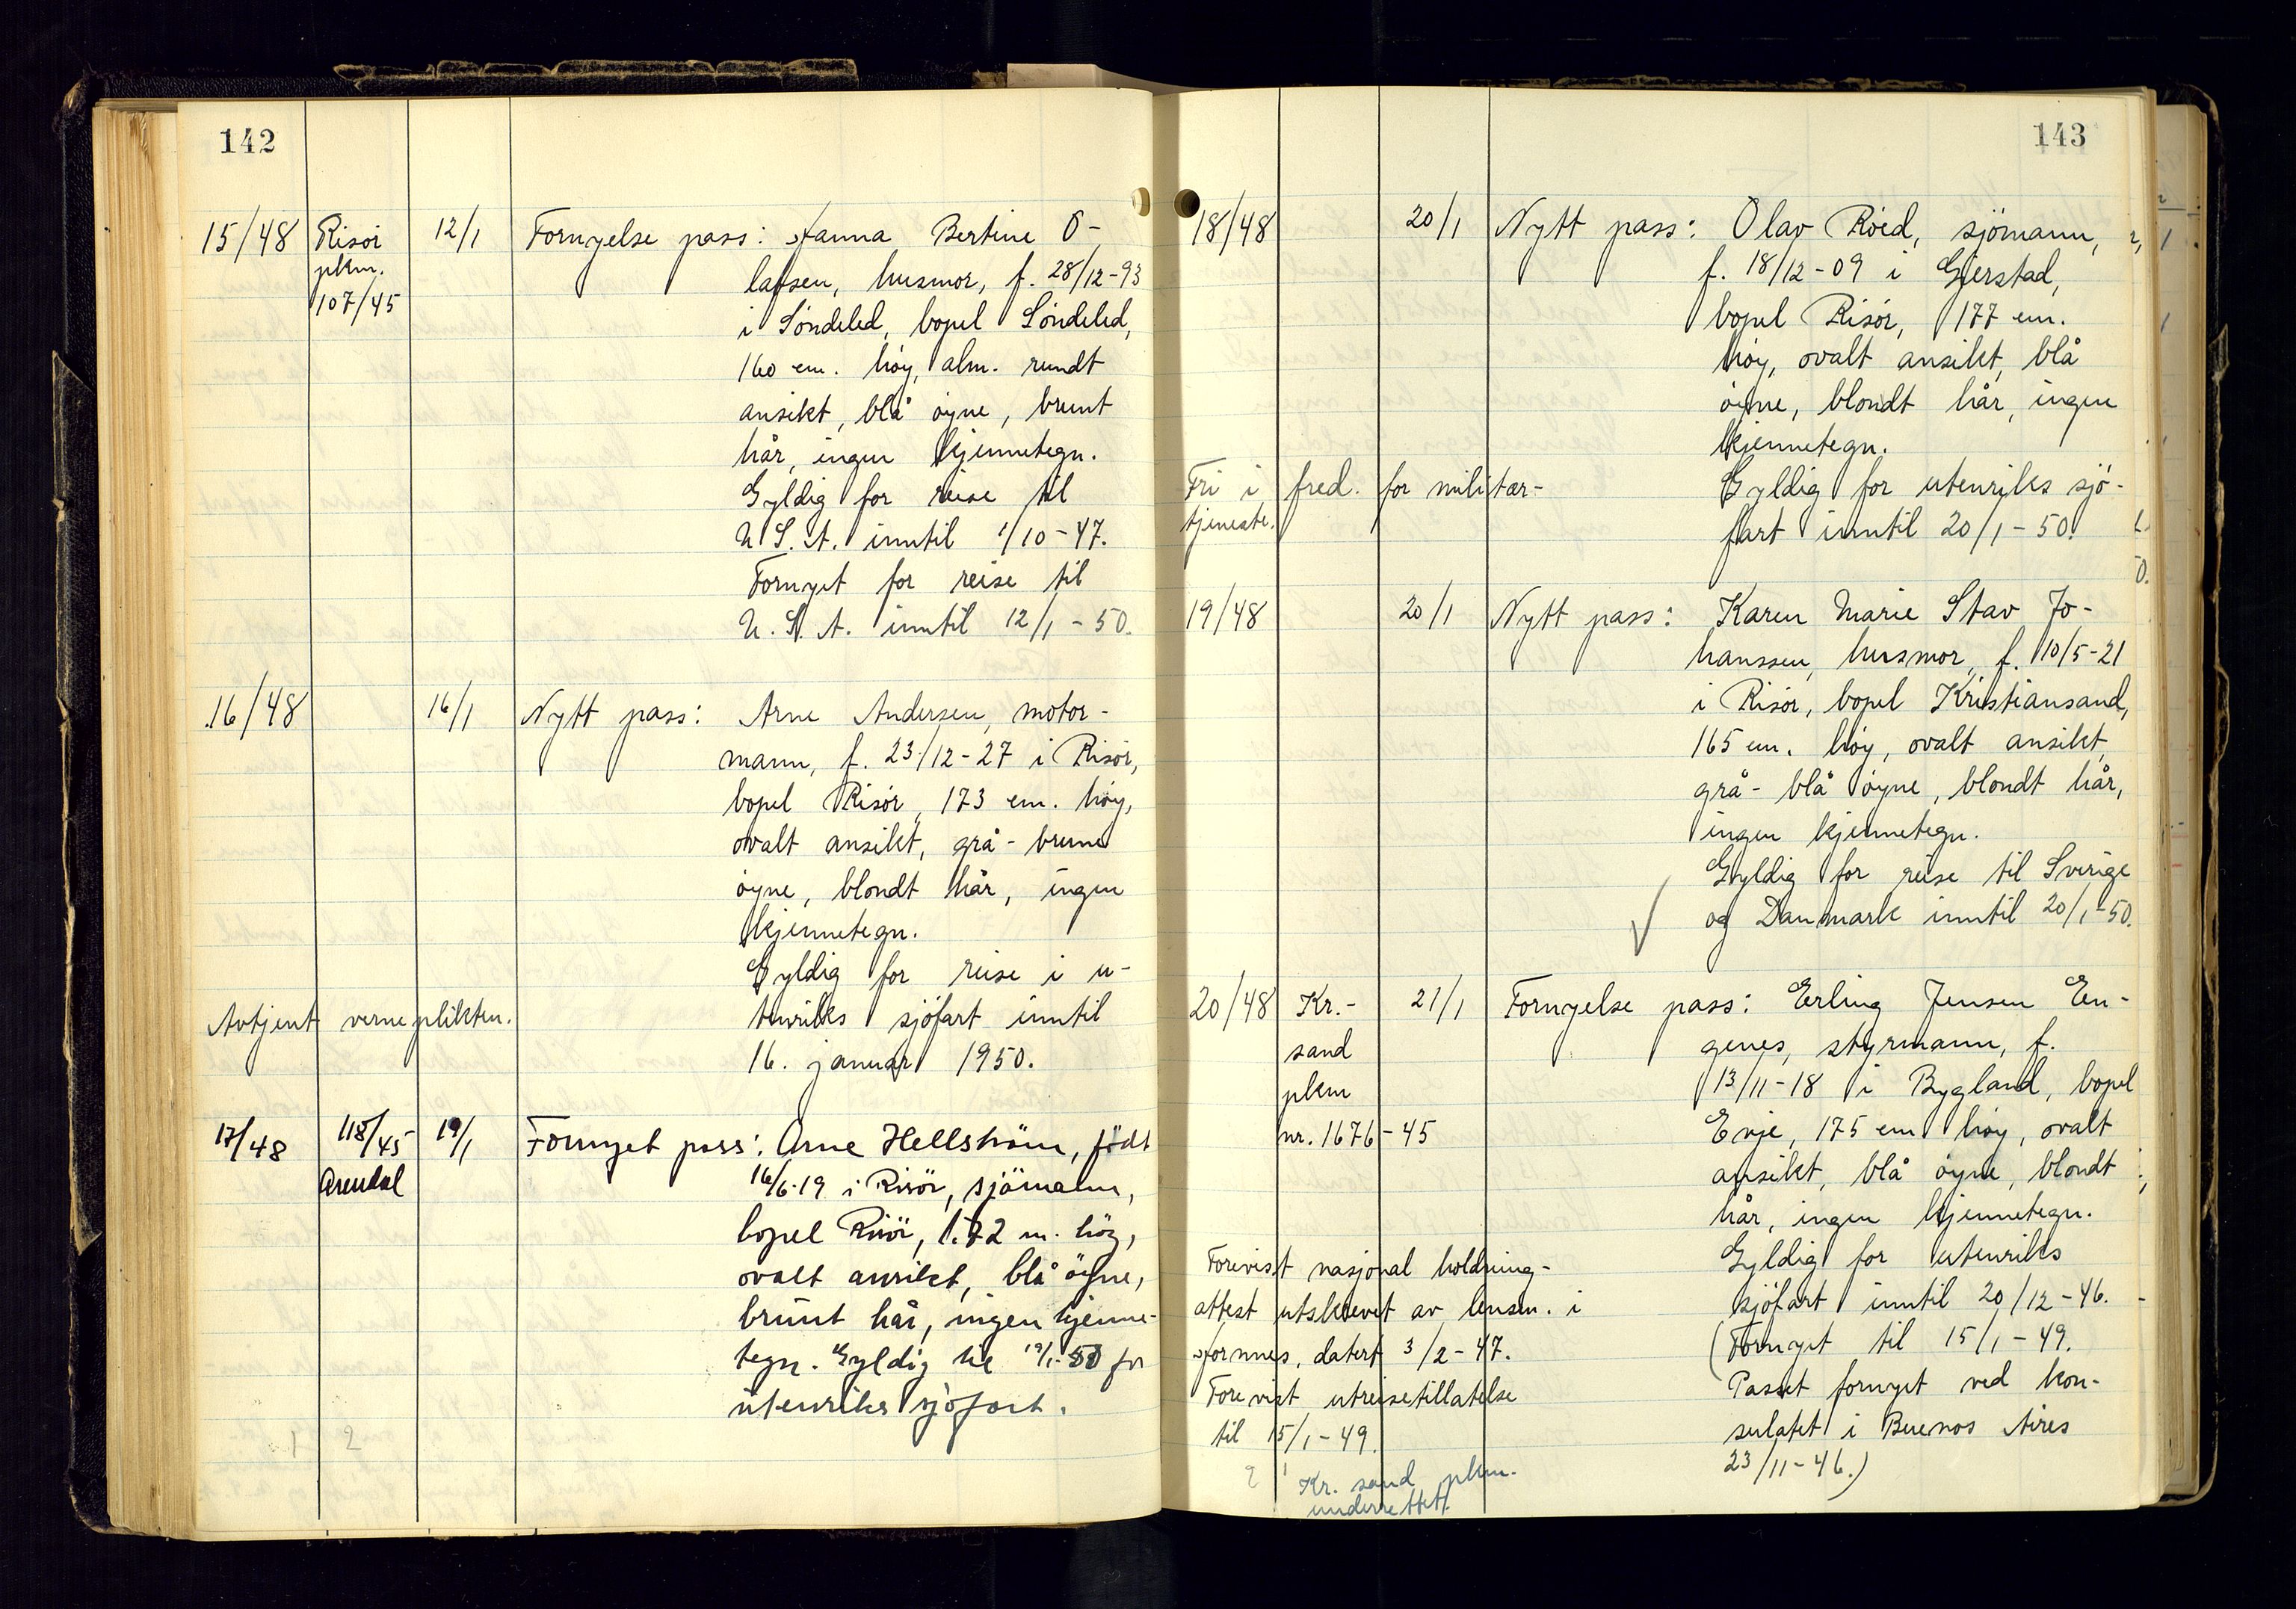 142
15/48 Risör 12/1 Fornyelse pass: Hanna Bertine O-
plkm. lafsen, husmor, f. 28/12-93
107/45 i Söndeled, bopel Söndeled,
160 cm. höy, alm. rundt
ansikt, blå öyne, brunt
hår, ingen kjennetegn.
Gyldig for reise til
U.S.A. inntil 1/10-47.
Fornyet for reise til
U.S.A. inntil 12/1-50.
16/48 16/1 Nytt pass: Arne Andersen, motor-
mann, f. 23/12-27 i Risör,
bopel Risör, 173 cm. höy,
ovalt ansikt, grå-brune
öyne, blondt hår, ingen
kjennetegn.
Gyldig for reise i u-
Avtjent verneplikten. tenriks sjöfart inntil
16. januar 1950.
17/48 118/45 19/1 Fornyet pass: Arne Hellström, födt
Arendal 16/6-19 i Risör, sjömann,
bopel Risör, 1.72 m. höy,
ovalt ansikt, blå öyne,
brunt hår, ingen kjenne-
tegn. Gyldig til 19/1-50 for
utenriks sjöfart.
1 2
143
18/48 20/1 Nytt pass: Olav Röed, sjömann,
f. 18/12-09 i Gjerstad,
bopel Risör, 177 cm.
höy, ovalt ansikt, blå
öyne, blondt hår, ingen
kjennetegn.
Fri i fred. for militær- Gyldig for utenriks sjö-
tjeneste. fart inntil 20/1-50.
19/48 20/1 Nytt pass: Karen Marie Stav Jo-
hanssen, husmor, f. 10/5-21
i Risör, bopel Kristiansand,
165 cm. höy, ovalt ansikt,
grå-blå öyne, blondt hår,
ingen kjennetegn.
Gyldig for reise til Sverige
og Danmark inntil 20/1-50.
20/48 Kr.- 21/1 Fornyelse pass: Erling Jensen En-
sand genes, styrmann, f.
plkm 13/11-18 i Bygland, bopel
nr. 1676-45 Evje, 175 cm höy, ovalt
ansikt, blå öyne, blondt
hår, ingen kjennetegn.
Forevist nasjonal holdning- Gyldig for utenriks
attest utskrevet av lensm. i sjöfart inntil 20/12-46.
Hornnes, datert 3/2-47. (Fornyet til 15/1-49.
Forevist utreisetillatelse Passet fornyet ved kon-
til 15/1-49. sulatet i Buenos Aires
23/11-46.)
2 1 Kr. sand plkm.
underrettet.